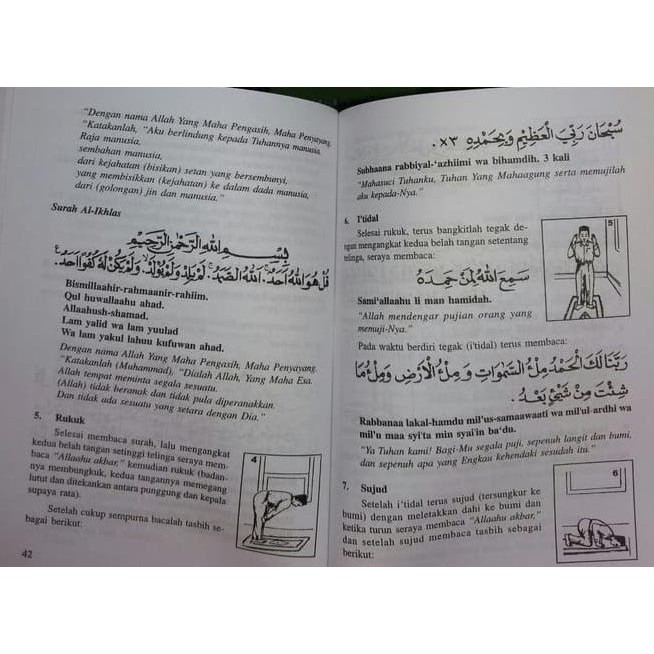 "Dengan nama Allah Yang Maha Pengasih, Maha Penyayang.
"Katakanlah, "Aku berlindung kepada Tuhannya manusia,
Raja manusia,
sembahan manusia,
dari kejahatan (bisikan) setan yang bersembunyi,
yang membisikkan (kejahatan) ke dalam dada manusia,
dari (golongan) jin dan manusia."
Surah Al-Ikhlas
بِسْمِ اللهِ الرَّحْمٰنِ الرَّحِيْمِ
قُلْ هُوَ اللهُ اَحَدٌ. اَللهُ الصَّمَدُ. لَمْ يَلِدْ وَلَمْ يُوْلَدْ. وَلَمْ يَكُنْ لَهُ كُفُوًا اَحَدٌ.
Bismillaahir-rahmaanir-rahiim.
Qul huwallaahu ahad.
Allaahush-shamad.
Lam yalid wa lam yuulad
Wa lam yakul lahuu kufuwan ahad.
Dengan nama Allah Yang Maha Pengasih, Maha Penyayang.
"Katakanlah (Muhammad), "Dialah Allah, Yang Maha Esa.
Allah tempat meminta segala sesuatu.
(Allah) tidak beranak dan tidak pula diperanakkan.
Dan tidak ada sesuatu yang setara dengan Dia."
5. Rukuk
Selesai membaca surah, lalu mengangkat
kedua belah tangan setinggi telinga seraya mem-
baca "Allaahu akbar," kemudian rukuk (badan-
nya membungkuk, kedua tangannya memegang
lutut dan ditekankan antara punggung dan kepala
supaya rata).
Setelah cukup sempurna bacalah tasbih se-
bagai berikut:
4
42
سُبْحَانَ رَبِّيَ الْعَظِيْمِ وَبِحَمْدِهِ ×٣.
Subhaana rabbiyal-'azhiimi wa bihamdih. 3 kali
"Mahasuci Tuhanku, Tuhan Yang Mahaagung serta memujilah
aku kepada-Nya."
6. I'tidal
Selesai rukuk, terus bangkitlah tegak de-
ngan mengangkat kedua belah tangan setentang
telinga, seraya membaca:
5
سَمِعَ اللهُ لِمَنْ حَمِدَهُ
Sami'allaahu li man hamidah.
"Allah mendengar pujian orang yang
memuji-Nya."
Pada waktu berdiri tegak (i'tidal) terus membaca:
رَبَّنَا لَكَ الْحَمْدُ مِلْءُ السَّمٰوَاتِ وَمِلْءُ الْاَرْضِ وَمِلْءُ مَا
شِئْتَ مِنْ شَيْئٍ بَعْدُ.
Rabbanaa lakal-hamdu mil'us-samaawaati wa mil'ul-ardhi wa
mil'u maa syi'ta min syai'in ba'du.
"Ya Tuhan kami! Bagi-Mu segala puji, sepenuh langit dan bumi,
dan sepenuh apa yang Engkau kehendaki sesudah itu."
7. Sujud
Setelah i'tidal terus sujud (tersungkur ke
bumi) dengan meletakkan dahi ke bumi dan
ketika turun seraya membaca "Allaahu akbar,"
dan setelah sujud membaca tasbih sebagai
berikut:
6